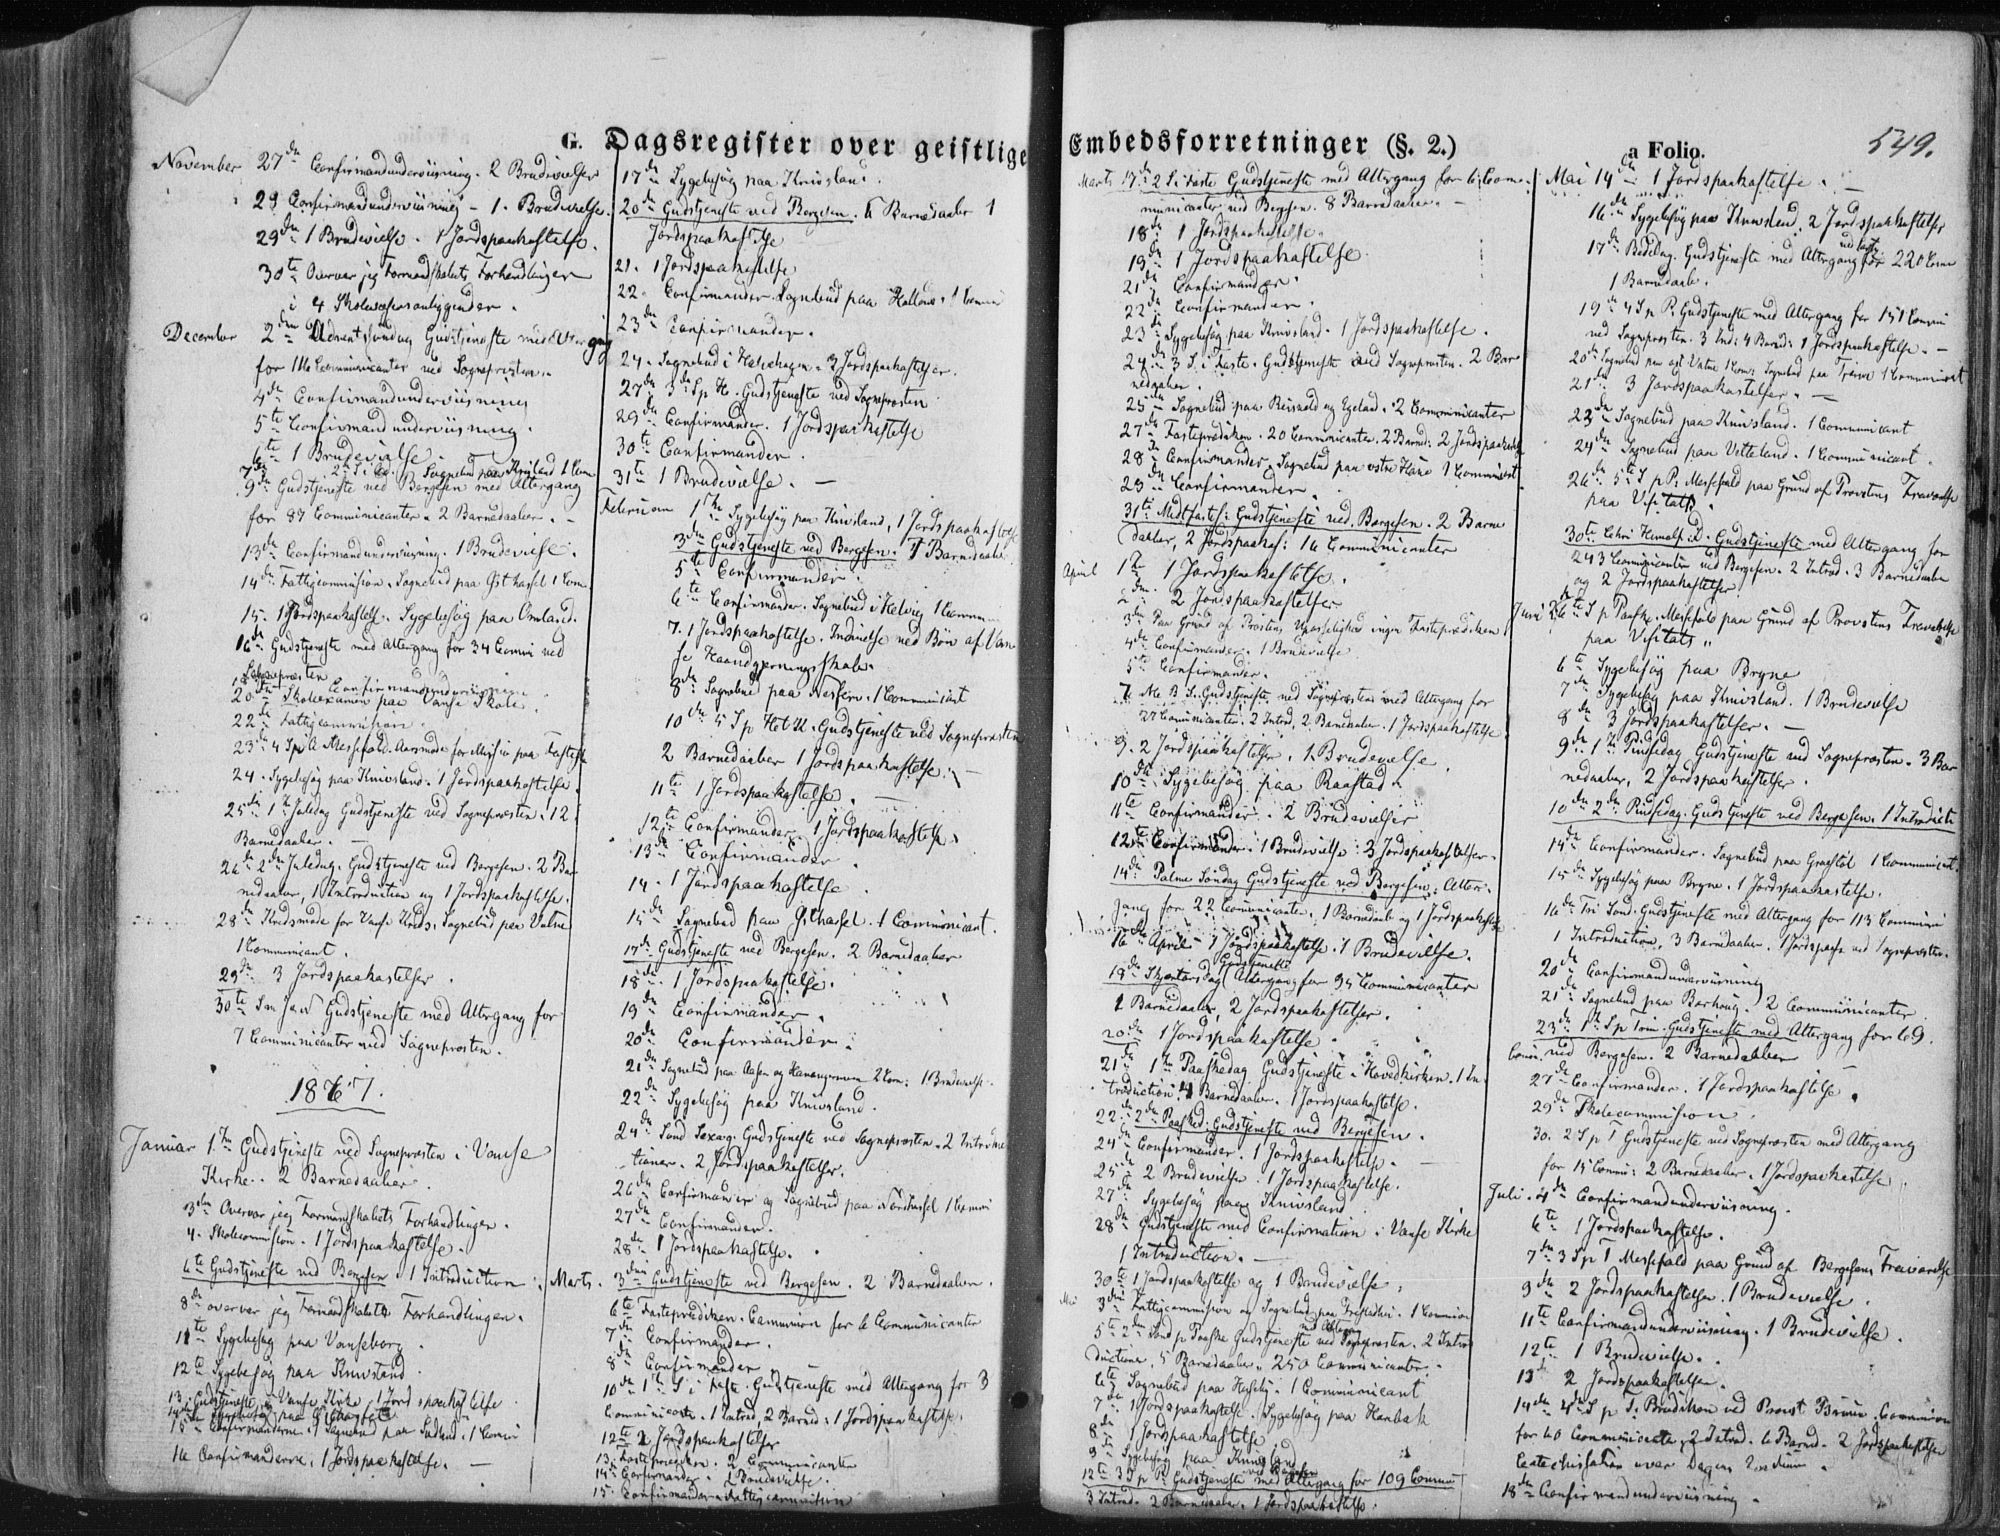 G. Dagsregister over geistlige Embedsforretninger (§. 2.) a Folio. 549.
November 27de Confirmandunderviisning. 2 Brudevielser
29 Confirmandunderviisning - 1. Brudevielse.
29de 1 Brudevielse. 1 Jordspaakastelse.
30te Overvar jeg Formandskabets Forhandlinger
i 4
December 2den Adventsöndag Gudstjeneste med Altergang
for 116 Communicanter ved Sognepræsten.
4de Confirmandunderviisning
5te Confirmandunderviisning.
6te 1 Brudevielse.
7de Sognebud paa 1 Com
9de Gudstjeneste ved Bergesen med Altergang
for 87 Communicanter. 2 Barnedaaber. -
13de Confirmandunderviisning. 1 Brudevielse.
14de Fattigcommission. Sognebud paa Githassel 1 Com.
15. 1 Jordspaakastelse. Sygebesög paa Omland.
16de Gudstjeneste med Altergang for 34 Communi ved
Sognepræsten
Confirmandunderviisning
20de Skoleexamen paa Vanse Skole.
22de Fattigcommission.
23de 4 S A Messefald. Aarsmöde for Mission paa
24. Sygebesög paa Knivsland. 1 Jordspaakastelse.
25de 1te Juledag Gudstjeneste ved Sognepræsten. 12
Barnedaaber.
26de 2den Juledag. Gudstjeneste ved Bergesen. 2 Bar
nedaaber, 1 Introduction og 1 Jordspaakastelse.
28de Kredsmöde for Vanse Kreds. Sognebud paa Vatne
1 Communicant.
29de 3 Jordspaakastelser.
30te Gudstjeneste med Altergang for
7 Communicanter ved Sognepræsten.
1867.
Januar 1ste Gudstjeneste ved Sognepræsten i Vanse
Kirke. 2 Barnedaaber.
3den Overvar jeg Formandskabets Forhandlinger.
4. Skolecommission. 1 Jordspaakastelse.
6te Gudstjeneste ved Bergesen. 1 Introduction.
8de overvar jeg Formandskabets Forhandlinger.
11te Sygebesög paa Vanseborg.
12te Sygebesög paa Knivsland.
13. Gudstjeneste i Vanse Kirke 1 Jordspaakastelse
14de Sygebesög paa
15de Confirmanderne. Sognebud paa 1 Commu
16 Confirmanderne, 1 Jordspaakastelse. -
17de Sygebesög paa Knivsland.
20de Gudstjeneste ved Bergesen. Barnedaaber 1
Jordspaakastelse
21. 1 Jordspaakastelse
22. Confirmander. Sognebud paa 1 Commu
23de Confirmander.
24. Sognebud i 3 Jordspaakastelser.
27de 3de S p H. Gudstjeneste ved Sognepræsten
29de Confirmander. 1 Jordspaakastelse
30te Confirmander.
31te 1 Brudevielse. -
Februar 1ste Sygebesög paa Knivsland, 1 Jordspaakastelse
3den Gudstjeneste ved Bergesen. Barnedaaber
5te Confirmander.
6te Confirmander. Sognebud i Helvig 1 Commun
7. 1 Jordspaakastelse. Indvielse ved Bön af Van
se Haandgjerningsskole.
8de Sognebud paa Nesheim. 1 Communicant
10de 5 S p Hel 3 K. Gudstjeneste ved Sognepræsten
2 Barnedaaber 1 Jordspaakastelse.
11te 1 Jordspaakastelse.
12te Confirmander. 1 Jordspaakastelse.
13de Confirmander.
14. 1 Jordspaakastelse
15de Sognebud paa Githassel. 1 Communicant.
17de Gudstjeneste ved Bergesen. 2 Barnedaaber
18de 1 Jordspaakastelse.
19de Confirmander.
20de Confirmander.
21de Sognebud paa Aasen og 2 Com: 1 Brudevielse.
22de Sygebesög paa Knivsland.
24de Sönd Sexag. Gudstjeneste ved Sognepræsten. 2 Introduc
tioner. 2 Jordspaakastelser.
26de Confirmander og Sognebud paa Nordhassel 1 Commu
27de Confirmander.
28de 1 Jordspaakastelse.
Marts. 3den Gudstjeneste ved Bergesen. 2 Barnedaaber.
6te Fasteprædiken. Communion for 6 Communicanter
7de Confirmander.
8de Confirmander
10de 1ste S i Faste. Gudstjeneste med Altergang for 3
Communicanter. 1 Introd, 2 Barned: 1 Jordspaakastelse.
12te 2 Jordspaakastelser
13. Fasteprædiken. 2 Communicanter
14de Confirmander. 2 Brudevielse.
15. Confirmander. Fattigcommission
Marts 17de 2 S i Faste Gudstjeneste med Altergang for 6 Com
municanter ved Bergesen. 8 Barnedaaber.
18de 1 Jordspaakastelse.
19de 1 Jordspaakastelse
21de Confirmander.
22de Confirmander.
23de Sygebesög paa Knivsland. 1 Jordspaakastelse.
24de 3 S. i Faste. Gudstjeneste ved Sognepræsten. 2 Bar
nedaaber.
25de Sognebud paa og Egeland. 2 Communicanter
27de Fasteprædiken. 20 Communicanter. 2 Barned: 2 Jordspaakastelse
28de Confirmander. Sognebud paa östre Hauge 1 Communicant
29de Confirmander.
31te Midfaste: Gudstjeneste ved Bergesen. 2 Barne
daaber, 2 Jordspaakas: 16 Communicanter
April 1ste 1 Jordspaakastelse.
2den 2 Jordspaakastelser
3de Paa Grund af Provstens Upasselighed ingen Fasteprædiken
4de Confirmander. 1 Brudevielse
5te Confirmander.
7. M B S. Gudstjeneste ved Sognepræsten med Altergang for
27 Communicanter. 2 Introd, 2 Barnedaaber. 1 Jordspaakastelse
9. 2 Jordspaakastelser. 1 Brudevielse.
10de Sygebesög paa Raastad
11te Confirmander. 2 Brudevielser
12te Confirmander. 1 Brudevielse. 3 Jordspaakastelser.
14de Palme Söndag Gudstjeneste ved Bergesen. Alter
gang for 22 Communicanter. 1 Barnedaab og 1 Jordspaakastelse
16de April 1 Jordspaakastelse. 1 Brudevielse.
18de Skjærtorsdag Gudstjeneste Altergang for 95 Communicanter
Barnedaaber, 2 Jordspaakastelser.
20de 1 Jordspaakastelse.
21de 1ste Paaskedag Gudstjeneste i Hovedkirken. 1 In
troduction. 4 Barnedaaber. 1 Jordspaakastelse.
22de 2de Paasked: Gudstjeneste ved Bergesen.
24de Confirmander. 1 Jordspaakastelse.
25de 2 Brudevielser. 1 Jordspaakastelse.
27de Sygebesög paa Knivsland
28de Gudstjeneste med Confirmation i Vanse Kirke
1 Introduction.
30te 1 Jordspaakastelse og 1 Brudevielse.
Mai 3die Fattigcommission og Sognebud paa 1 Commun
5te 2den Sönd p Paaske Gudstjeneste med Alterg ved Sognepræsten. 2 Intro
ductioner, 5 Barnedaaber. 250 Communicanter.
6te Sognebud paa 1 Communicant
7de 1 Jordspaakastelse. Sygebesög paa Haabak
8de 1 Jordspaakastelse
9de Sygebesög paa Knivsland
12te 3 S p P. Gudstjeneste ved Bergesen med Altergang for 109 Commun
3 Introd. 2 Barnedaaber. 1 Jordspaakastelse.
Mai 14de 1 Jordspaakastelse. -
16de Sygebesög paa Knivsland, 2 Jordspaakastelser
17de Bededag. Gudstjeneste med Altergang for 220 Com
1 Barnedaab.
19de 4 S p P. Gudstjeneste med Altergang for 151 Commu
ved Sognepræsten. 3 Ind: 4 Barned: 1 Jordspaakastelse. -
20de Sognebud paa Vatne 1 Com: Sognebud paa 1 Communicant
21de 3 Jordspaakastelser. -
22de Sognebud paa Knivsland. 1 Communicant
24de Sognebud paa Vetteland. 1 Communicant.
26de 5te S p P. Messefald paa Grund af Provstens Fraværelse
paa Visitats.
30te Chri Himmelf: D. Gudstjeneste med Altergang for
243 Communicanter ved Bergesen. 2 Introd. 3 Barnedaaber
og 2 Jordspaakastelser.
Juni 6te S p Paaske. Messefald paa Grund af Provstens Fraværelse
paa Visitats "
6te Sygebesög paa Bryne
7de Sygebesög paa Knivsland. 1 Brudevielse
8de 3 Jordspaakastelser. -
9de 1ste Pindsedag Gudstjeneste ved Sognepræsten. 3 Bar
nedaaber, 2 Jordspaakastelser.
10de 2de Pindsedag. Gudstjeneste ved Bergesen. 1 Introducti
14de Confirmander. Sognebud paa Græstöl 1 Communicant.
15de Sygebesög paa Bryne. 1 Jordspaakastelse.
16de Tri Sönd. Gudstjeneste med Altergang for 113 Communi
1 Introduction, 3 Barnedaaber. 1 Jordspaaka ved Sognepræsten.
20de Confirmandunderviisning
21de Sognebud paa Borhaug. 2 Communicanter
23de 1ste S p Trin. Gudstjeneste med Altergang for 69.
Comm. ved Bergesen. 2 Barnedaaber
27de Confirmander. 1 Jordspaakastelse.
29de Skolecommission.
30. 2 S p T Gudstjeneste ved Sognepræsten med Altergang
for 15 Commu: 2 Barnedaaber. 1 Jordspaakastelse.
Juli 4de Confirmandunderviisning.
6te 1 Jordspaakastelse.
7de 3 S p T Messefald paa Grund af Bergesens Fraværelse
9de 2 Jordspaakastelser. 1 Brudevielse.
11te Confirmandunderviisning. 1 Brudevielse.
12te 1 Brudevielse.
13de 2 Jordspaakastelser.
14de 4de S p T. Prædiken ved Provst Bruun. Communion
for 60 Communicanter, 2 Introd. 6 Barned. 2 Jordspaakastelser
Catechisation over Dagens
18de Confirmandunderviisning.